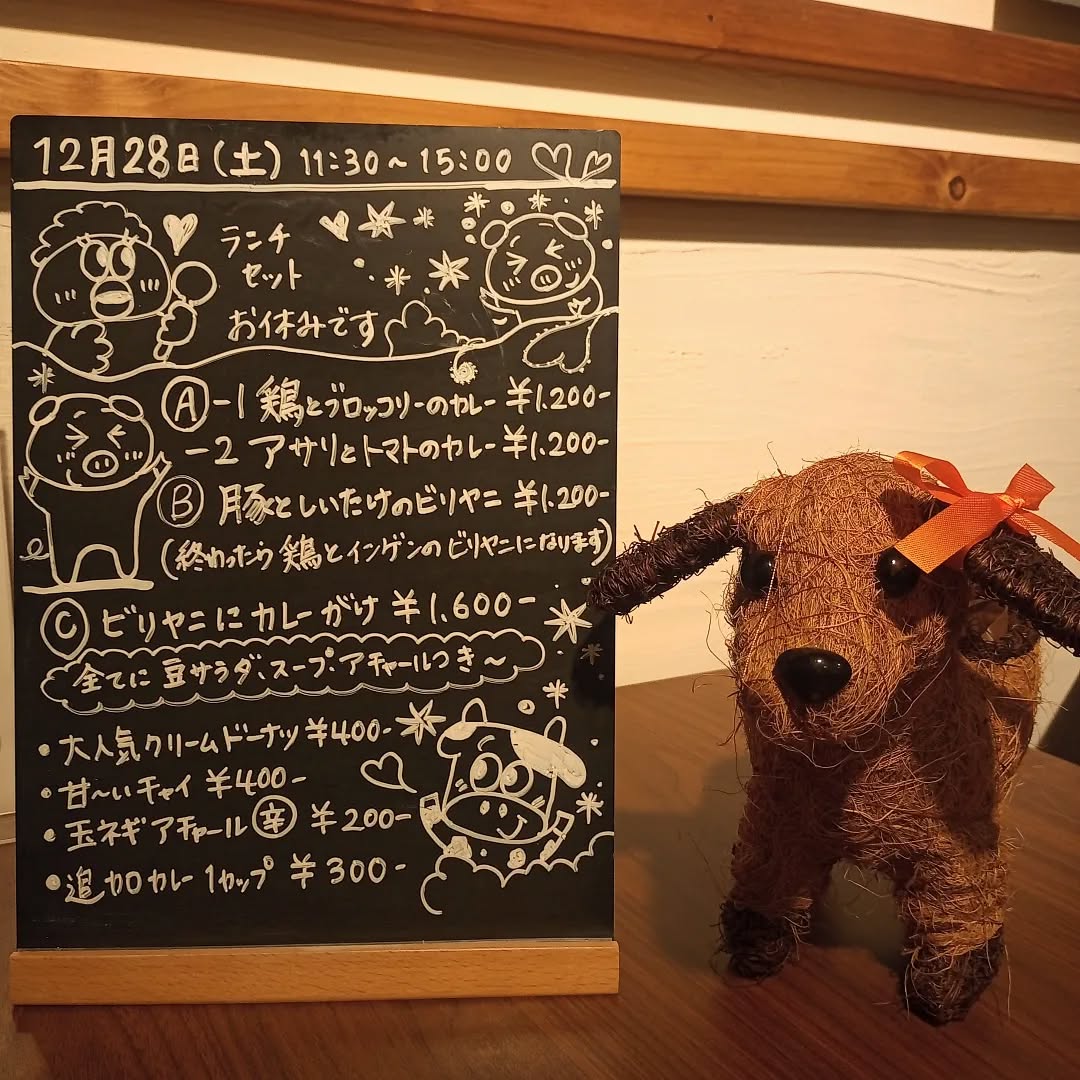 12月28日(土) 11:30~15:00
ランチ
セット
お休みです
Ⓐ-1 鶏とブロッコリーのカレー ¥1.200-
-2 アサリとトマトのカレー ¥1.200-
Ⓑ 豚としいたけのビリヤニ ¥1.200-
(終わったら 鶏とインゲンのビリヤニになります)
Ⓒ ビリヤニにカレーがけ ¥1,600-
全てに 豆サラダ、スープ・アチャールつき~
• 大人気クリームドーナツ ¥400-
• 甘~いチャイ ¥400-
• 玉ネギアチャール㊛ ¥200-
• 追加カレー 1カップ ¥300-